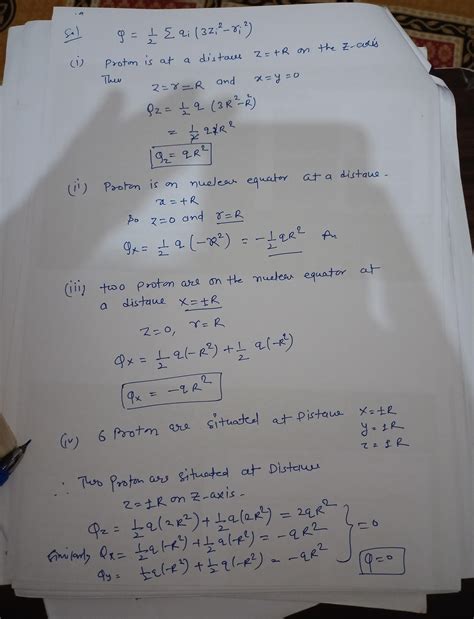 Sol Q = 1/2 Σ qi (3Zi² - ri²)
(i) Proton is at a distance Z = +R on the Z-axis
Thus
Z = r = R and x = y = 0
Qz = 1/2 q (3R² - R²)
= 1/2 q 2R²
Qz = qR²
(ii) Proton is on nuclear equator at a distance.
x = +R
So Z = 0 and r = R
Qx = 1/2 q (-R²) = -1/2 qR² An
(iii) two proton are on the nuclear equator at
a distance X = ±R
Z = 0, r = R
Qx = 1/2 q(-R²) + 1/2 q(-R²)
Qx = -qR²
(iv) 6 Proton are situated at Distance x = ±R
y = ±R
z = ±R
∴ Two Proton are situated at Distance
Z = ±R on Z-axis.
Qz = 1/2 q(2R²) + 1/2 q(2R²) = 2qR²
Similarly Qx = 1/2 q(-R²) + 1/2 q(-R²) = -qR² } = 0
Qy = 1/2 q(-R²) + 1/2 q(-R²) = -qR² Q = 0